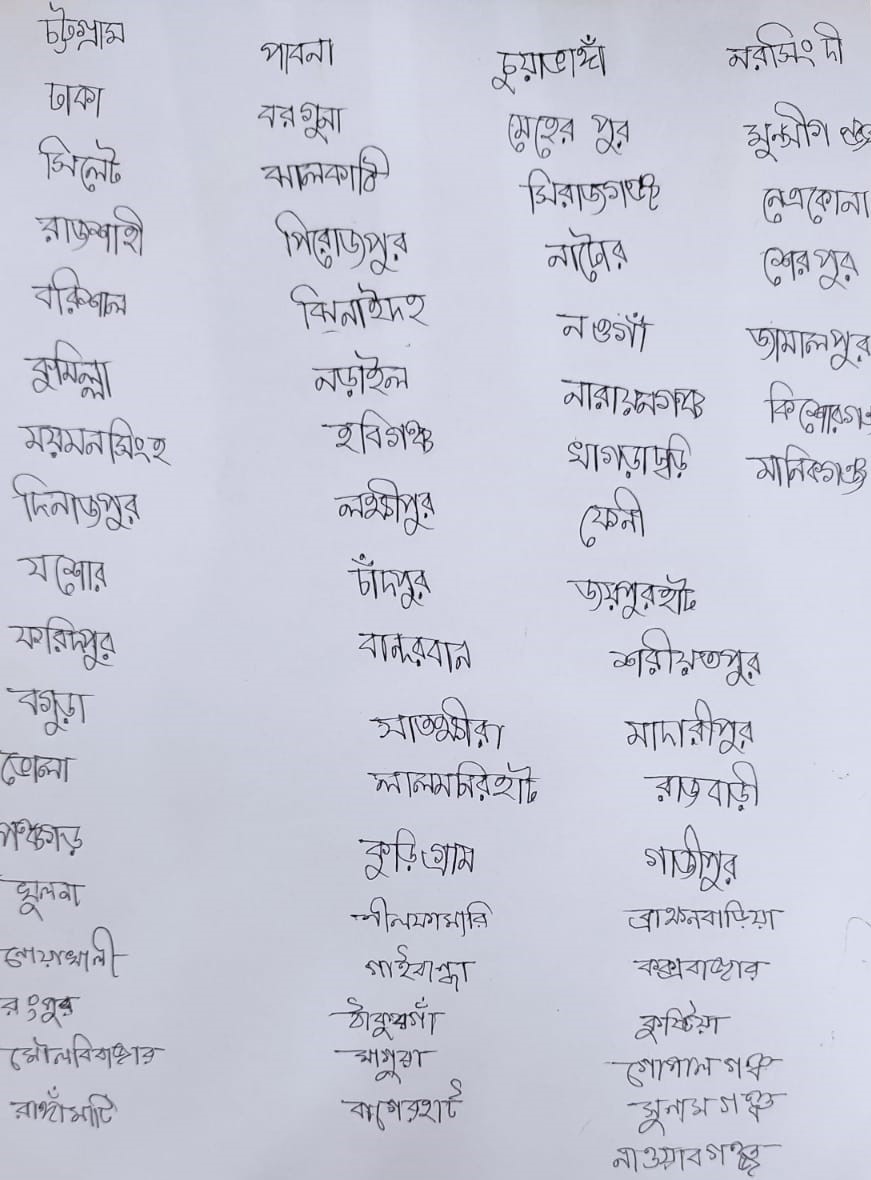 চট্টগ্রাম
ঢাকা
সিলেট
রাজশাহী
বরিশাল
কুমিল্লা
ময়মনসিংহ
দিনাজপুর
যশোর
ফরিদপুর
বগুড়া
ভোলা
পঞ্চগড়
খুলনা
নোয়াখালী
রংপুর
মৌলবিবাজার
রাঙ্গাঁমাটি
পাবনা
বরগুনা
ঝালকাঠি
পিরোজপুর
ঝিনাইদহ
নড়াইল
হবিগঞ্চ
লক্ষীপুর
চাঁদপুর
বান্দরবান
সাতক্ষীরা
লালমনিরহাট
কুড়িগ্রাম
নীলফামারি
গাইবান্ধা
ঠাকুরগাঁ
মাগুরা
বাগেরহাট
চুয়াডাঙ্গাঁ
মেহের পুর
সিরাজগঞ্জ
নাটোর
নওগাঁ
নারায়নগঞ্চ
খাগড়াছড়ি
ফেনী
জয়পুরহাট
শরীয়তপুর
মাদারীপুর
রাজবাড়ী
গাজীপুর
ব্রাহ্মনবাড়িয়া
কক্সবাজার
কুষ্টিয়া
গোপাল গঞ্চ
সুনাম গঞ্জ
নাওয়াব গঞ্জ
নরসিং দী
মুন্সীগ গঞ্জ
নেত্রকোনা
শেরপুর
জামালপুর
কিশোরগঞ্জ
মানিকগঞ্জ